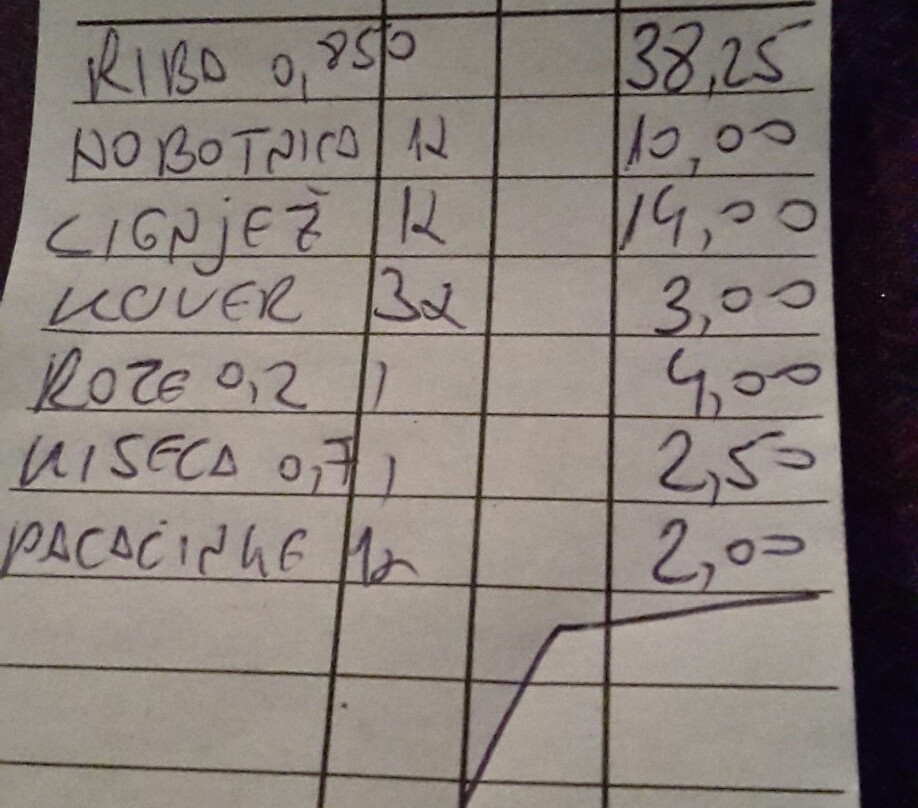 RIBA 0,850 38,25
HOBOTNICA 1X 10,00
LIGNJE Ž 1X 14,00
KUVER 3X 3,00
ROZE 0,2 1 4,00
KISELA 0,7 1 2,50
PALAČINKE 1X 2,00